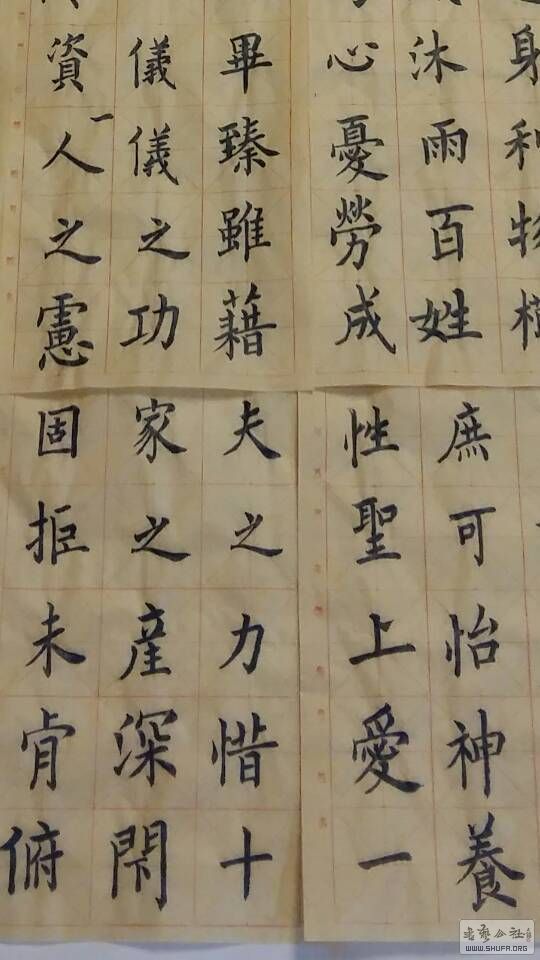 身利物
沐雨百姓
心憂勞成
畢臻雖藉
儀儀之功
資一人之慮
庶可怡神養
性聖上愛一
夫之力惜十
家之産深閇
固拒未肯俯
书艺公社
WWW.SHUFA.ORG